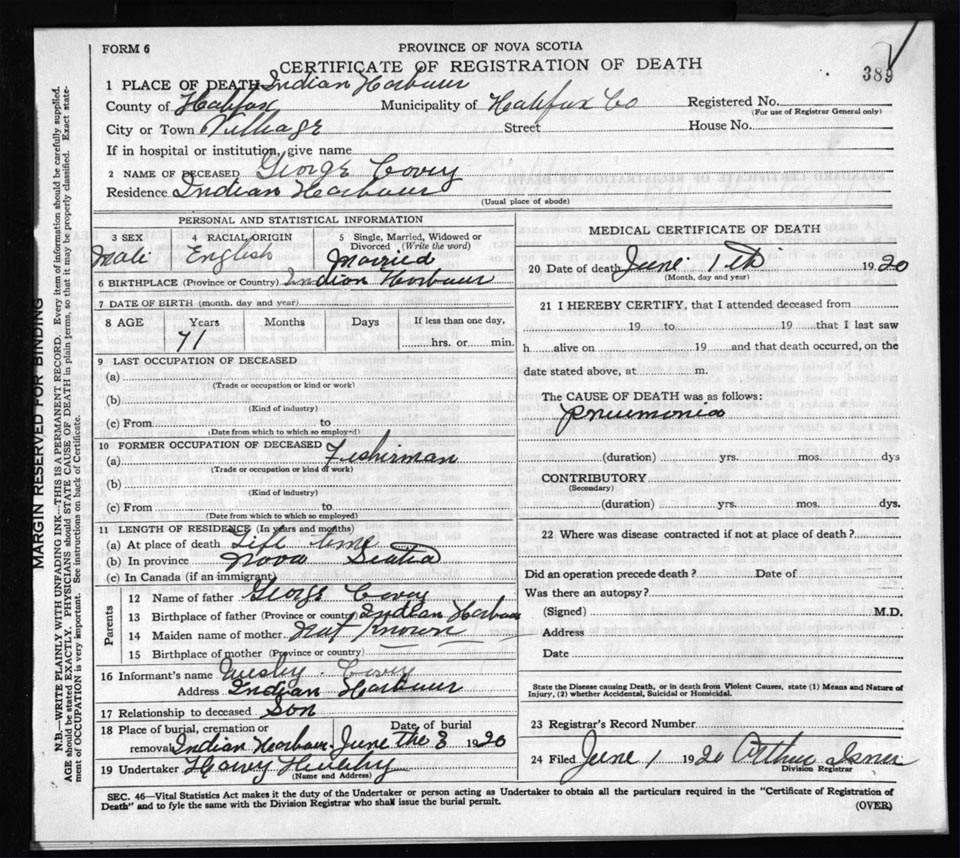 FORM 6
PROVINCE OF NOVA SCOTIA
CERTIFICATE OF REGISTRATION OF DEATH
389
1 PLACE OF DEATH Indian Harbour
County of Halifax Municipality of Halifax Co Registered No.
(For use of Registrar General only)
City or Town Village Street House No.
If in hospital or institution, give name
2 NAME OF DECEASED George Covey
Residence Indian Harbour
(Usual place of abode)
PERSONAL AND STATISTICAL INFORMATION
3 SEX 4 RACIAL ORIGIN 5 Single, Married, Widowed or Divorced (Write the word)
Male English Married
6 BIRTHPLACE (Province or Country) Indian Harbour
7 DATE OF BIRTH (month, day and year)
8 AGE Years Months Days If less than one day,
71 hrs. or min.
9 LAST OCCUPATION OF DECEASED
(a)
(Trade or occupation or kind or work)
(b)
(Kind of industry)
(c) From to
(Date from which to which so employed)
10 FORMER OCCUPATION OF DECEASED
(a) Fisherman
(Trade or occupation or kind of work)
(b)
(Kind of industry)
(c) From to
(Date from which to which so employed)
11 LENGTH OF RESIDENCE (In years and months)
(a) At place of death Life time
(b) In province Nova Scotia
(c) In Canada (if an immigrant)
Parents
12 Name of father George Covey
13 Birthplace of father (Province or country) Indian Harbour
14 Maiden name of mother Not Known
15 Birthplace of mother (Province or country)
16 Informant's name Covey
Address Indian Harbour
17 Relationship to deceased Son
18 Place of burial, cremation or removal Indian Harbour Date of burial June the 3 1920
19 Undertaker
(Name and Address)
MEDICAL CERTIFICATE OF DEATH
20 Date of death June 1th 1920
(Month, day and year)
21 I HEREBY CERTIFY, that I attended deceased from
19 to 19 that I last saw
h alive on 19 and that death occurred, on the
date stated above, at m.
The CAUSE OF DEATH was as follows:
Pneumonia
(duration) yrs. mos. dys
CONTRIBUTORY
(Secondary)
(duration) yrs. mos. dys.
22 Where was disease contracted if not at place of death?
Did an operation precede death? Date of
Was there an autopsy?
(Signed) M.D.
Address
Date
State the Disease causing Death, or in death from Violent Causes, state (1) Means and Nature of
Injury, (2) whether Accidental, Suicidal or Homicidal.
23 Registrar's Record Number
24 Filed June 1 1920 Arthur Isnor
Division Registrar
SEC. 46—Vital Statistics Act makes it the duty of the Undertaker or person acting as Undertaker to obtain all the particulars required in the "Certificate of Registration of
Death" and to fyle the same with the Division Registrar who shall issue the burial permit.
(OVER)
MARGIN RESERVED FOR BINDING
N.B.—WRITE PLAINLY WITH UNFADING INK—THIS IS A PERMANENT RECORD. Every item of information should be carefully supplied.
AGE should be stated EXACTLY. PHYSICIANS should STATE CAUSE OF DEATH in plain terms, so that it may be properly classified. Exact state-
ment of OCCUPATION is very important. See instructions on back of Certificate.